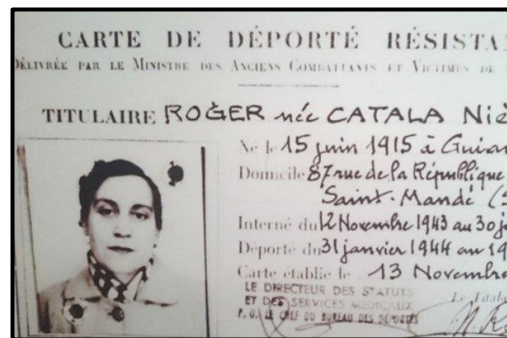 CARTE DE DÉPORTÉ RÉSISTA
DÉLIVRÉE PAR LE MINISTRE DES ANCIENS COMBATTANTS ET VICTIMES DE
TITULAIRE ROGER née CATALA Niè
Né le 15 juin 1915 à
Domicile 87 rue de la République
Saint-Mandé (S
Interné du 12 Novembre 1943 au 30 j
Déporté du 31 janvier 1944 au 19
Carte établie le 13 Novembre
LE DIRECTEUR DES STATUTS
ET DES SERVICES MÉDICAUX
P.O. LE CHEF DU BUREAU DES DÉPORTÉS
Le Titula